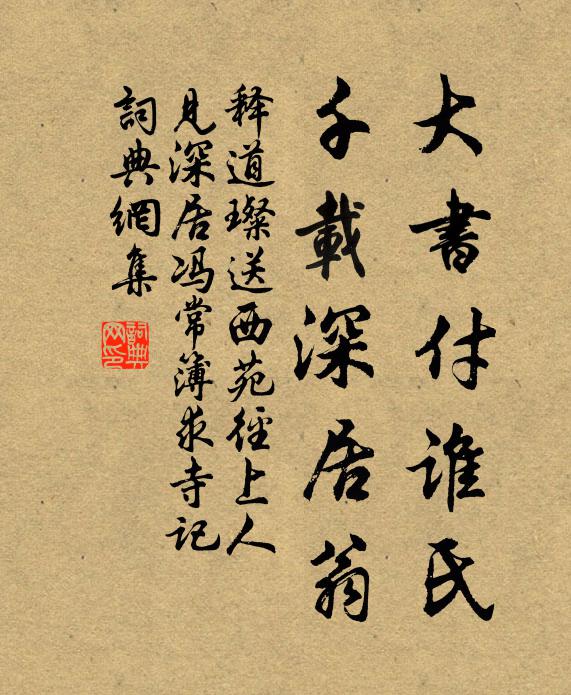 大書付谁氏
千載深居翁
释道璨送西苑徑上人
見深居冯常簿求寺記
詞典網集
詞典网印